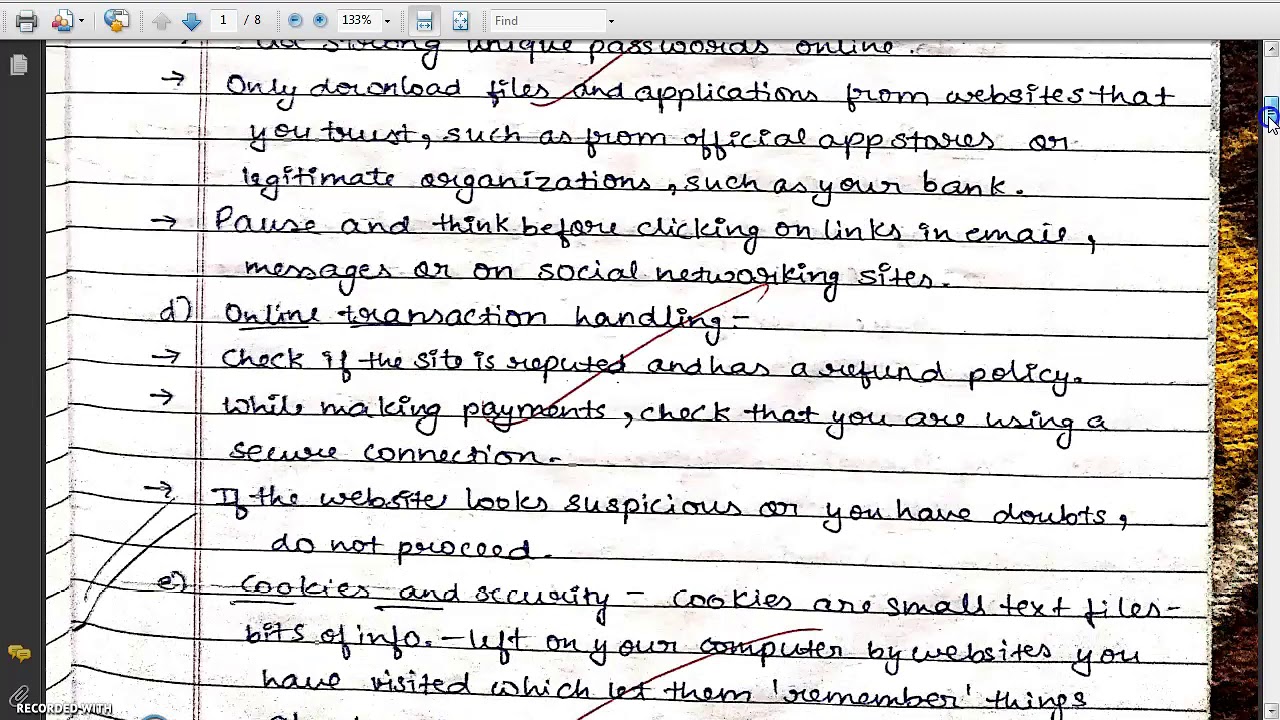 1 / 8
133%
Find
strong unique passwords online.
→ Only download files and applications from websites that
you trust, such as from official app stores or
legitimate organizations, such as your bank.
→ Pause and think before clicking on links in email,
messages or on social networking sites.
d) Online transaction handling:-
→ Check if the site is reputed and has a refund policy.
→ While making payments, check that you are using a
secure connection.
→ If the website looks suspicious or you have doubts,
do not proceed.
e) Cookies and security - cookies are small text files-
bits of info. - left on your computer by websites you
have visited which let them 'remember' things
RECORDED WITH